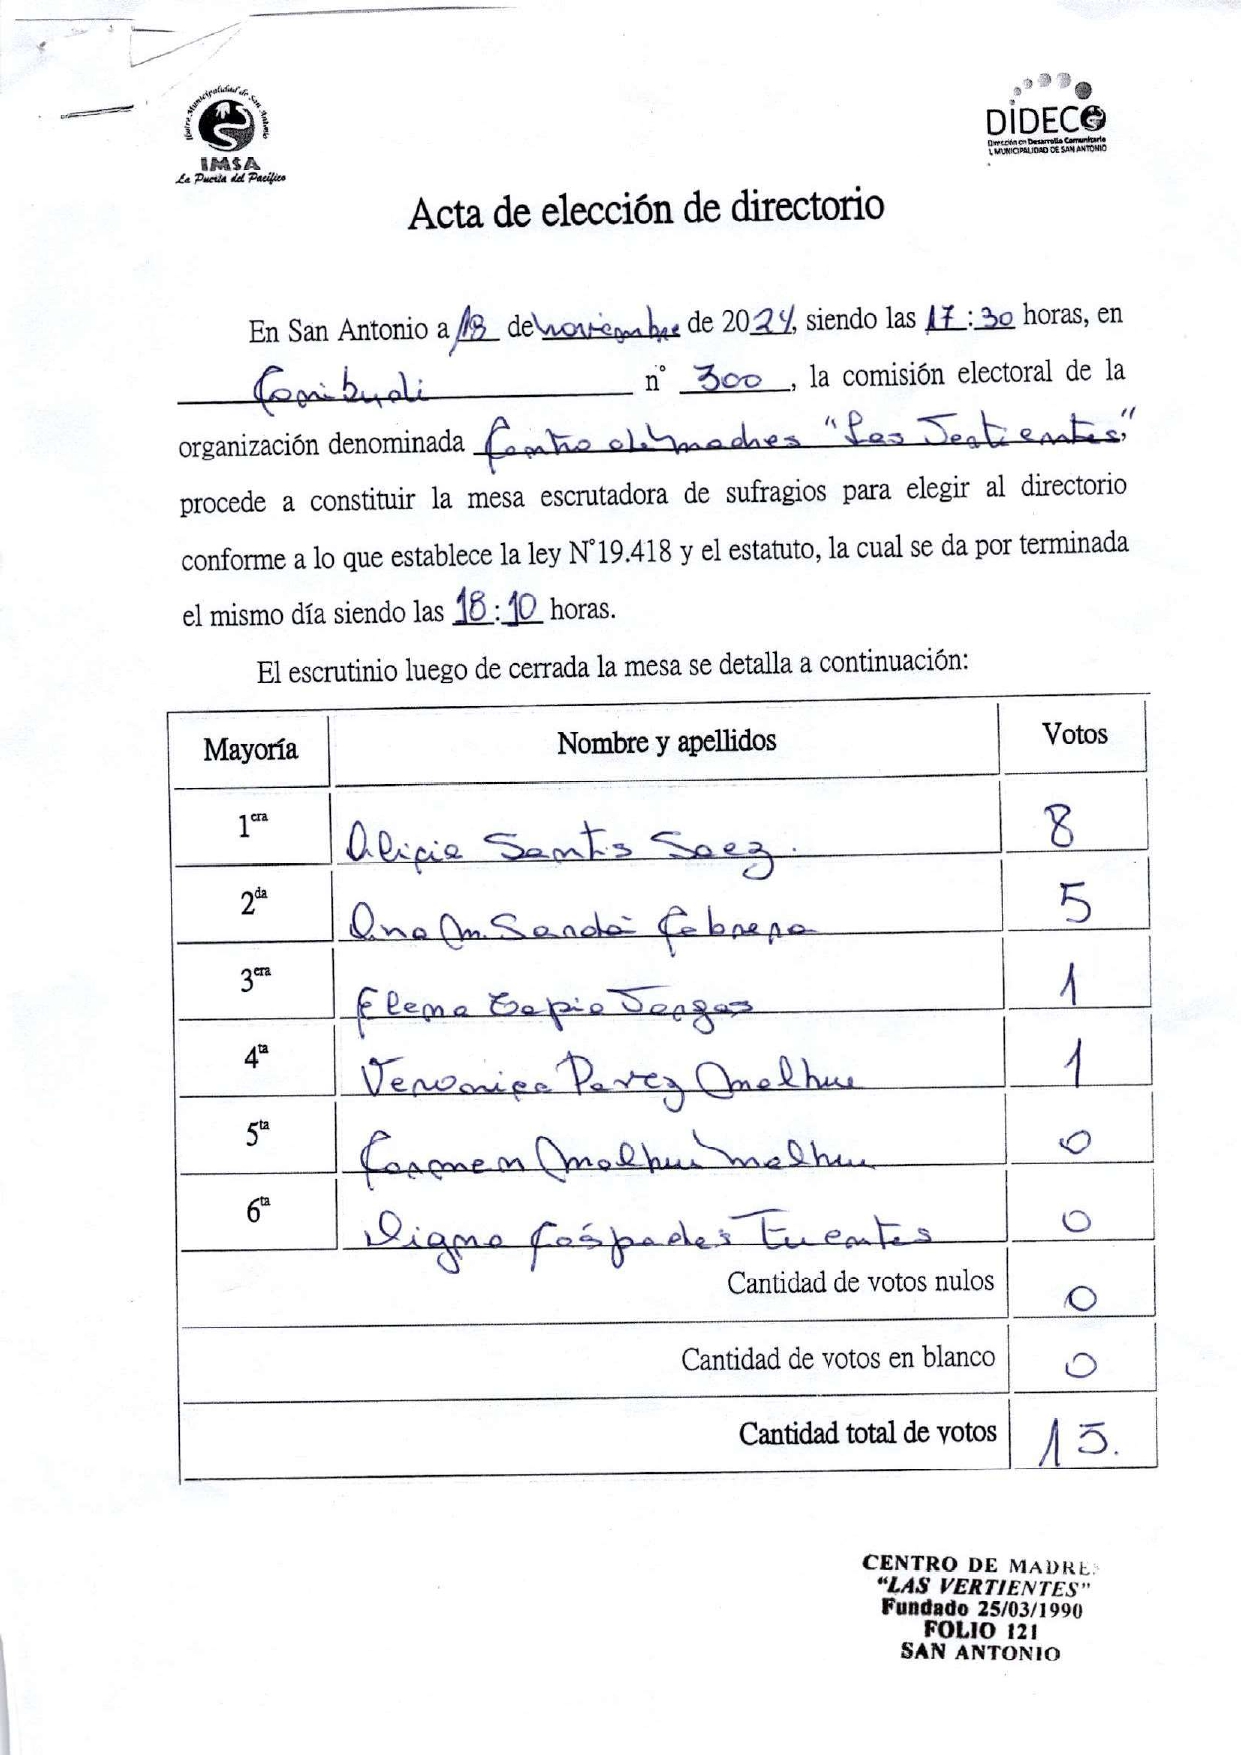 Ilustre Municipalidad de San Antonio
IMSA
La Puerta del Pacífico
DIDECO
Dirección de Desarrollo Comunitario
I. MUNICIPALIDAD DE SAN ANTONIO
Acta de elección de directorio
En San Antonio a 18 de noviembre de 2024, siendo las 17:30 horas, en
n° 300, la comisión electoral de la
organización denominada Centro de madres "Las Vertientes",
procede a constituir la mesa escrutadora de sufragios para elegir al directorio
conforme a lo que establece la ley N°19.418 y el estatuto, la cual se da por terminada
el mismo día siendo las 18:10 horas.
El escrutinio luego de cerrada la mesa se detalla a continuación:
Mayoría Nombre y apellidos Votos
1era Alicia Santis Saez. 8
2da Ana M. Cabrera 5
3era Elena Tapia Vargas 1
4ta Veronica Perez Malhue 1
5ta Carmen Malhue Malhue 0
6ta Digna Céspedes Fuentes 0
Cantidad de votos nulos 0
Cantidad de votos en blanco 0
Cantidad total de votos 15.
CENTRO DE MADRES
"LAS VERTIENTES"
Fundado 25/03/1990
FOLIO 121
SAN ANTONIO